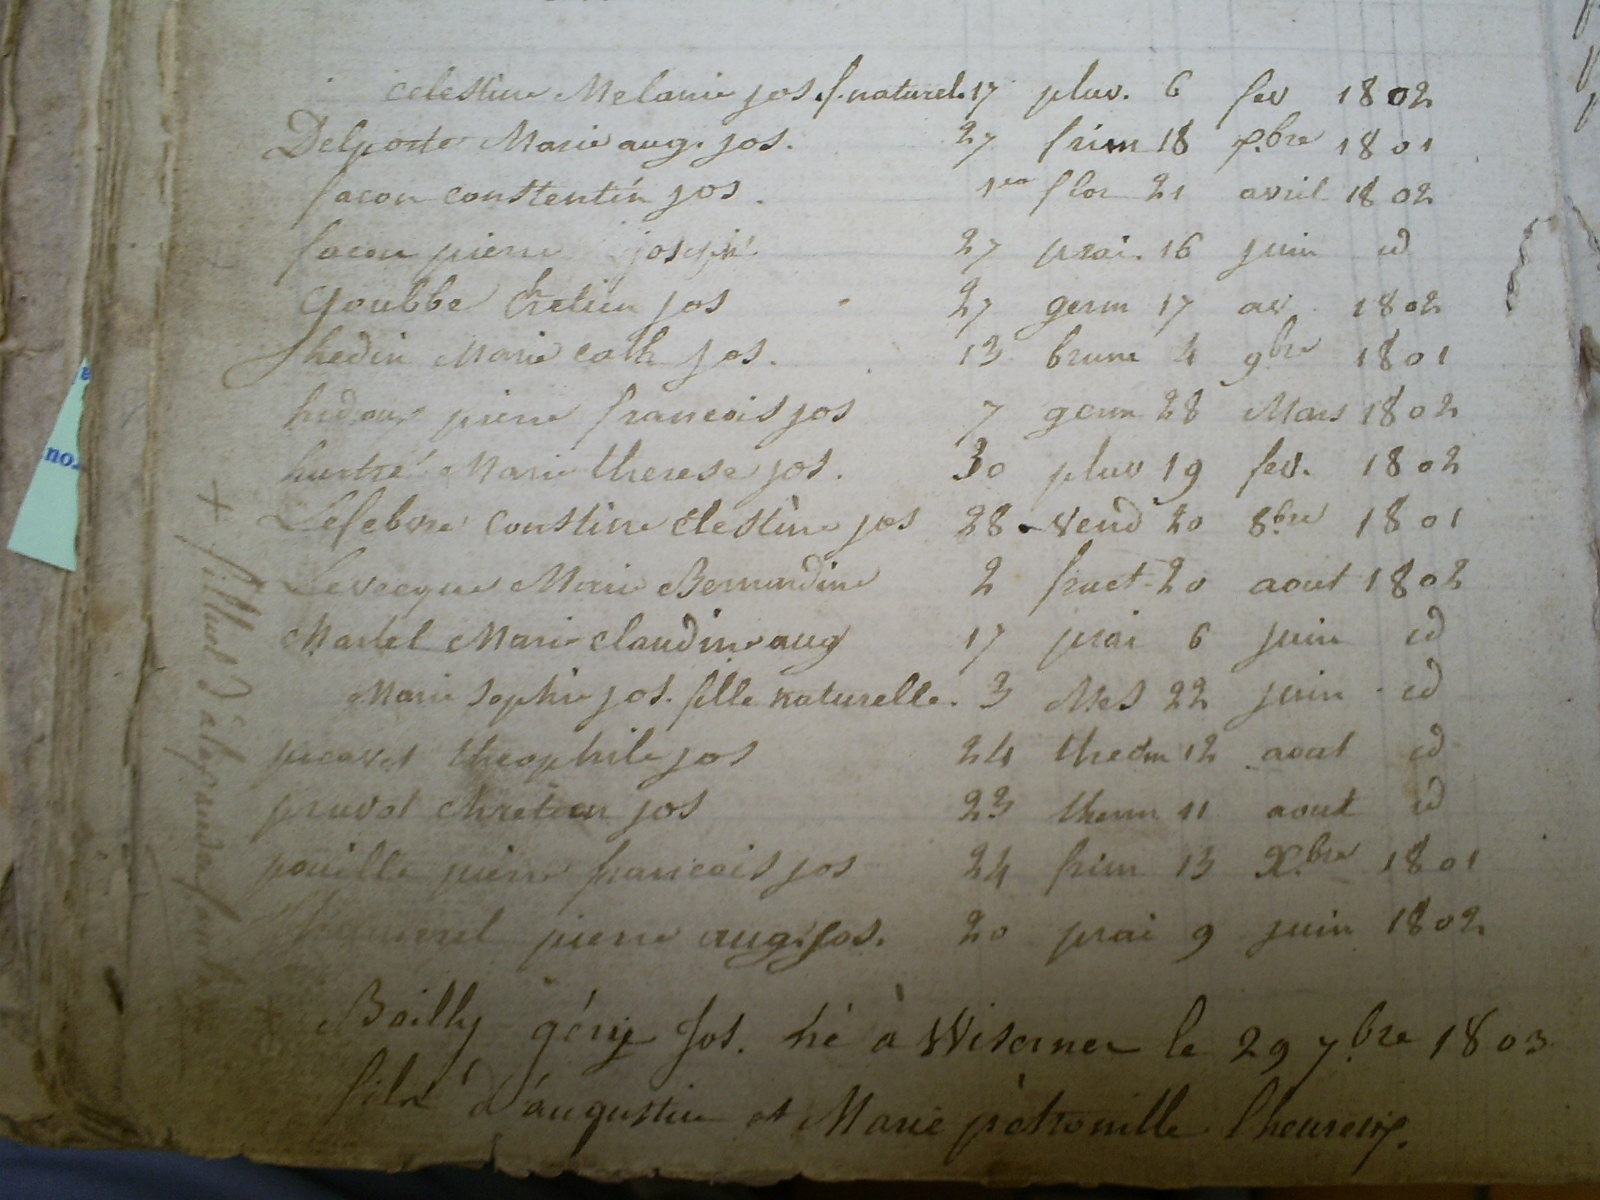 celestine Melanie jos. f. naturel. 17 pluv. 6 fev 1802
Delporte Marie aug. jos. 27 frim 18 xbre 1801
facon constentin jos. 1er flor 21 avril 1802
facon pierre joseph 27 prai. 16 juin id
Goubbe Chretien jos 27 germ 17 av. 1802
hedin Marie cath jos. 13 brum 4 9bre 1801
pierre francois jos 7 germ 28 Mars 1802
Marie therese jos. 30 pluv 19 fev. 1802
Lefebvre constine Clestine jos 28 vend 20 8bre 1801
Levecque Marie Bernardine 2 fruct 20 aout 1802
Martel Marie claudine aug 17 prai 6 juin id
Marie Sophie jos. fille naturelle. 3 Mes 22 juin id
picavet theophile jos 24 therm 12 aout id
pruvot chretien jos 23 therm 11 aout id
pouille pierre francois jos 24 frim 15 Xbre 1801
pierre aug. jos. 20 prai 9 juin 1802
Bailly génie Jos. né à Wisernes le 29 7bre 1803
fils d'augustin et Marie pétronille lheureux.
no.